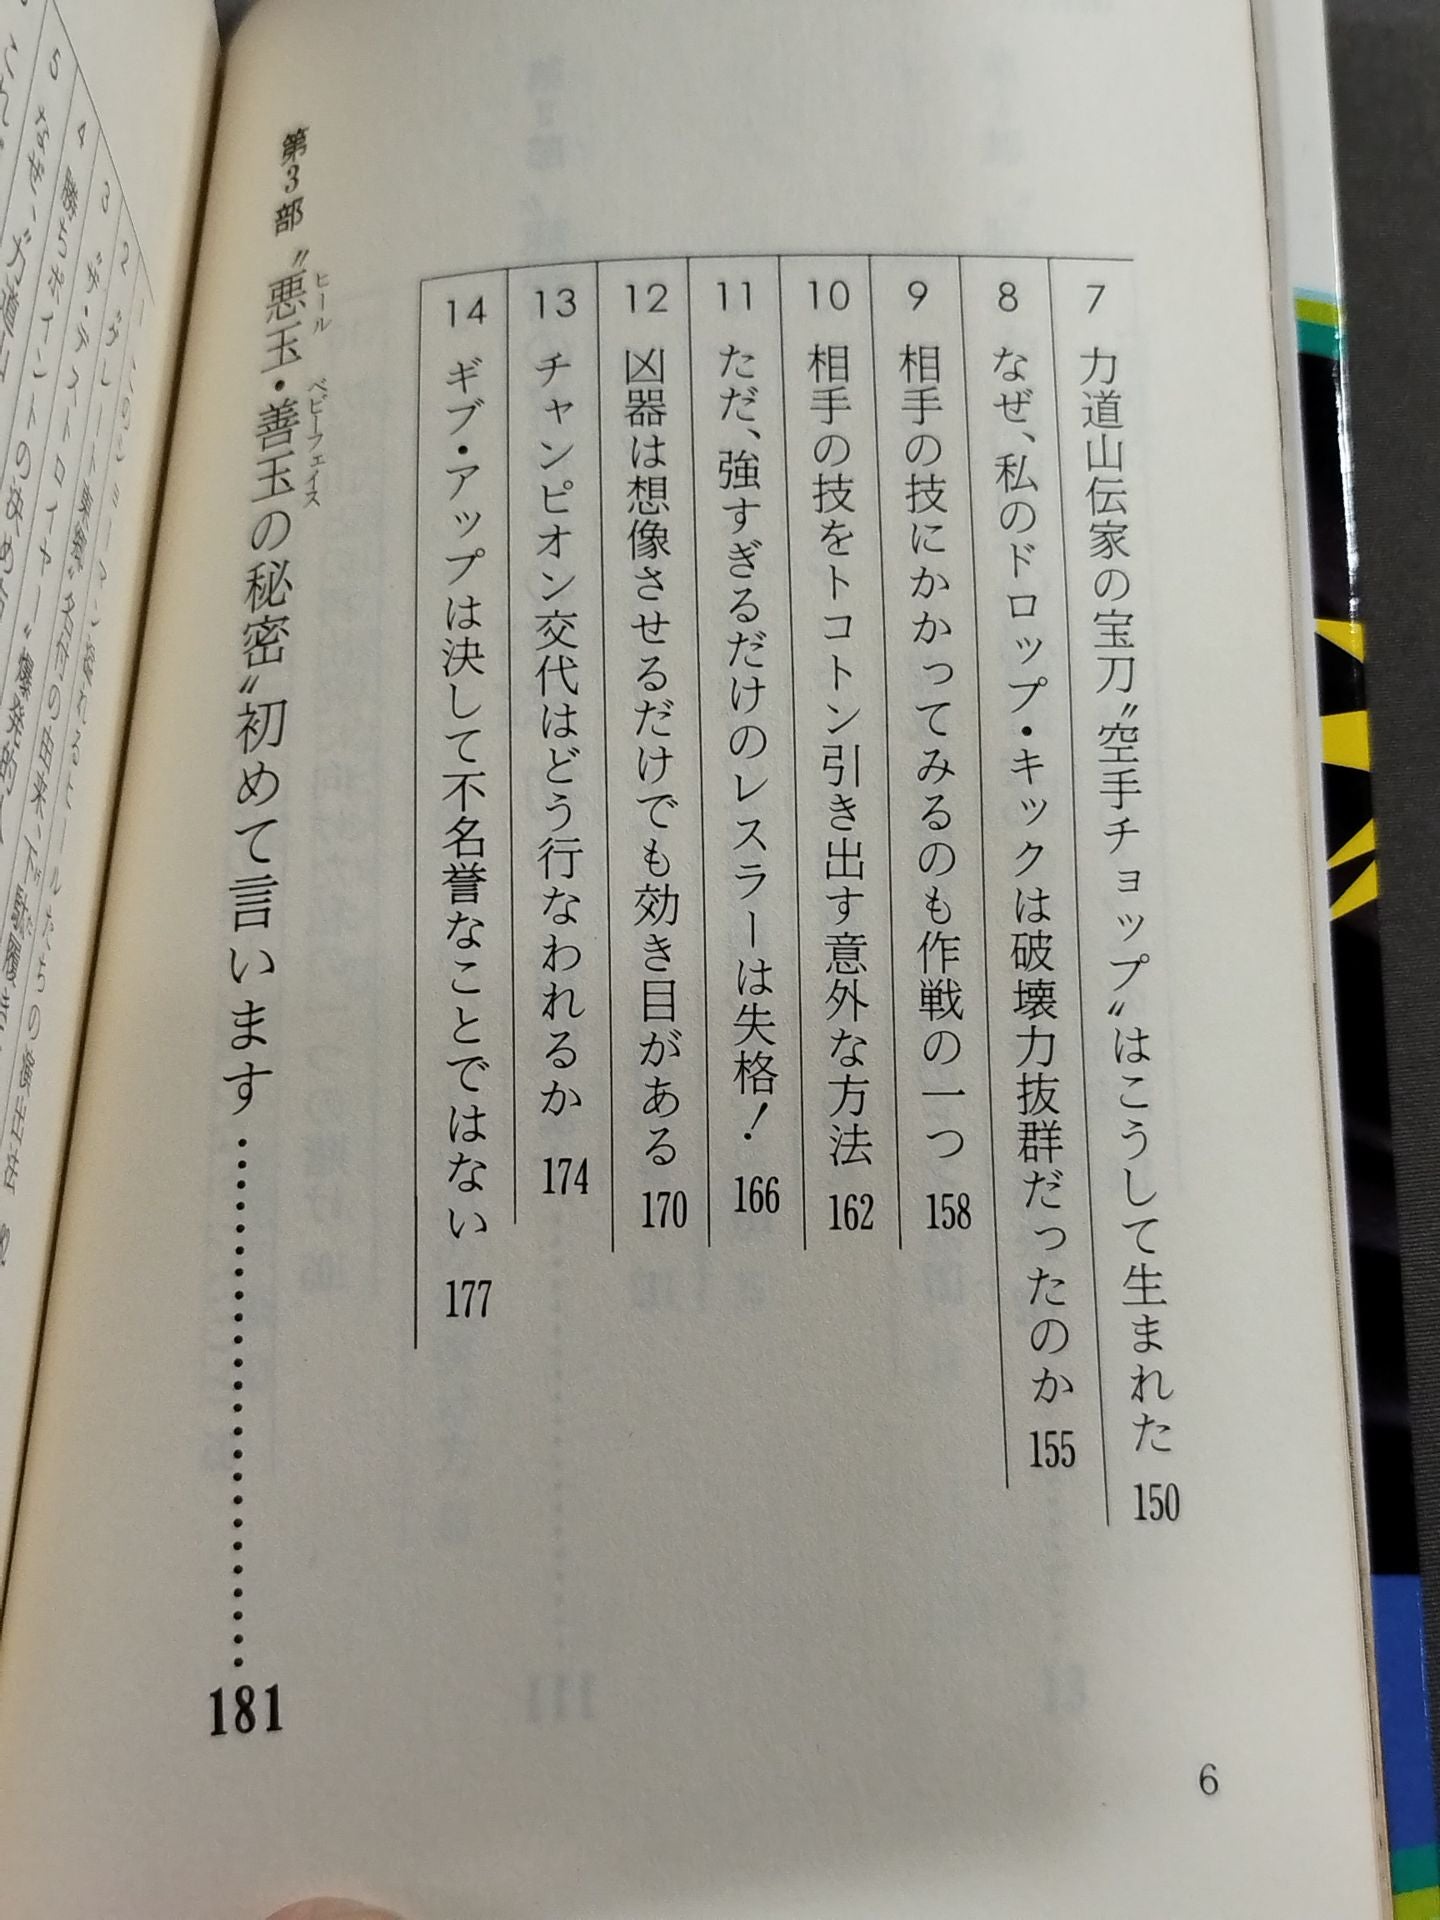 7 力道山伝家の宝刀〝空手チョップ〟はこうして生まれた 150
8 なぜ、私のドロップ・キックは破壊力抜群だったのか 155
9 相手の技にかかってみるのも作戦の一つ 158
10 相手の技をトコトン引き出す意外な方法 162
11 ただ、強すぎるだけのレスラーは失格! 166
12 凶器は想像させるだけでも効き目がある 170
13 チャンピオン交代はどう行なわれるか 174
14 ギブ・アップは決して不名誉なことではない 177
ヒール ベビーフェイス
第3部 〝悪玉・善玉の秘密〟初めて言います…………………… 181
6
2
3
4 勝ちポイントの決め
5 なぜ、〝力道山